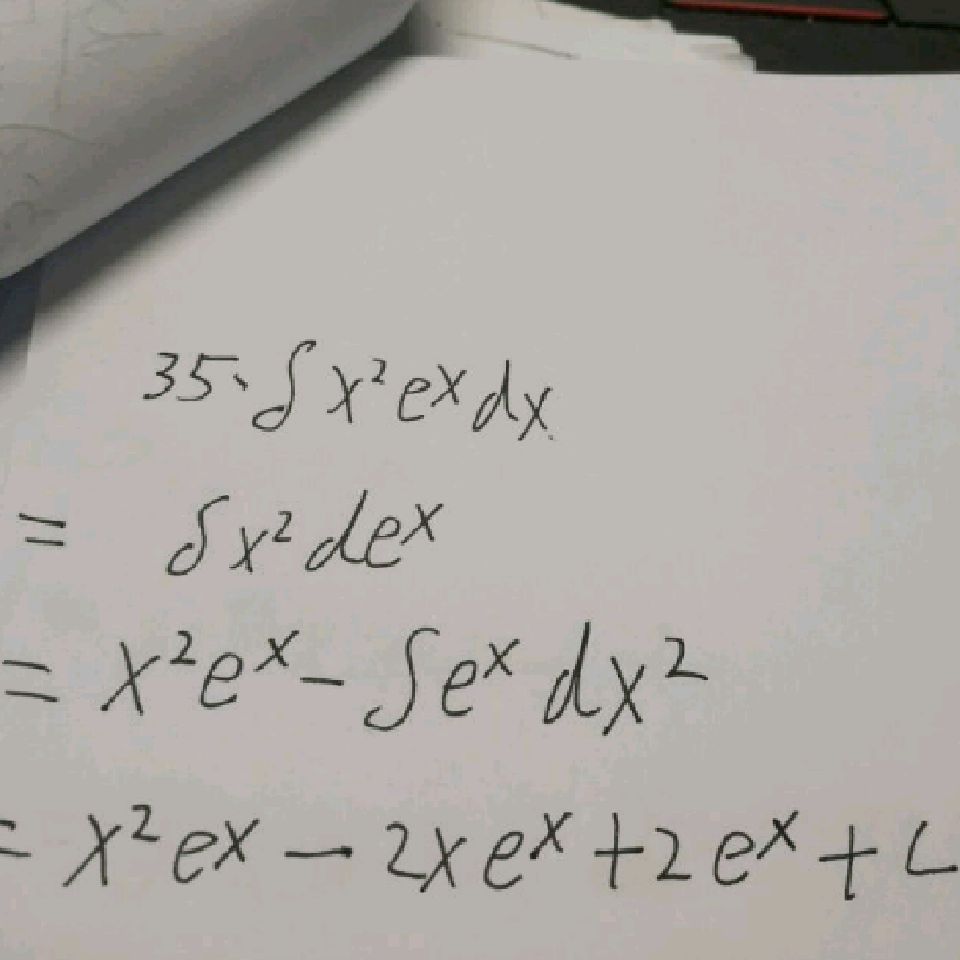 35、∫x²eˣdx
= ∫x²deˣ
= x²eˣ-∫eˣdx²
= x²eˣ-2xeˣ+2eˣ+C